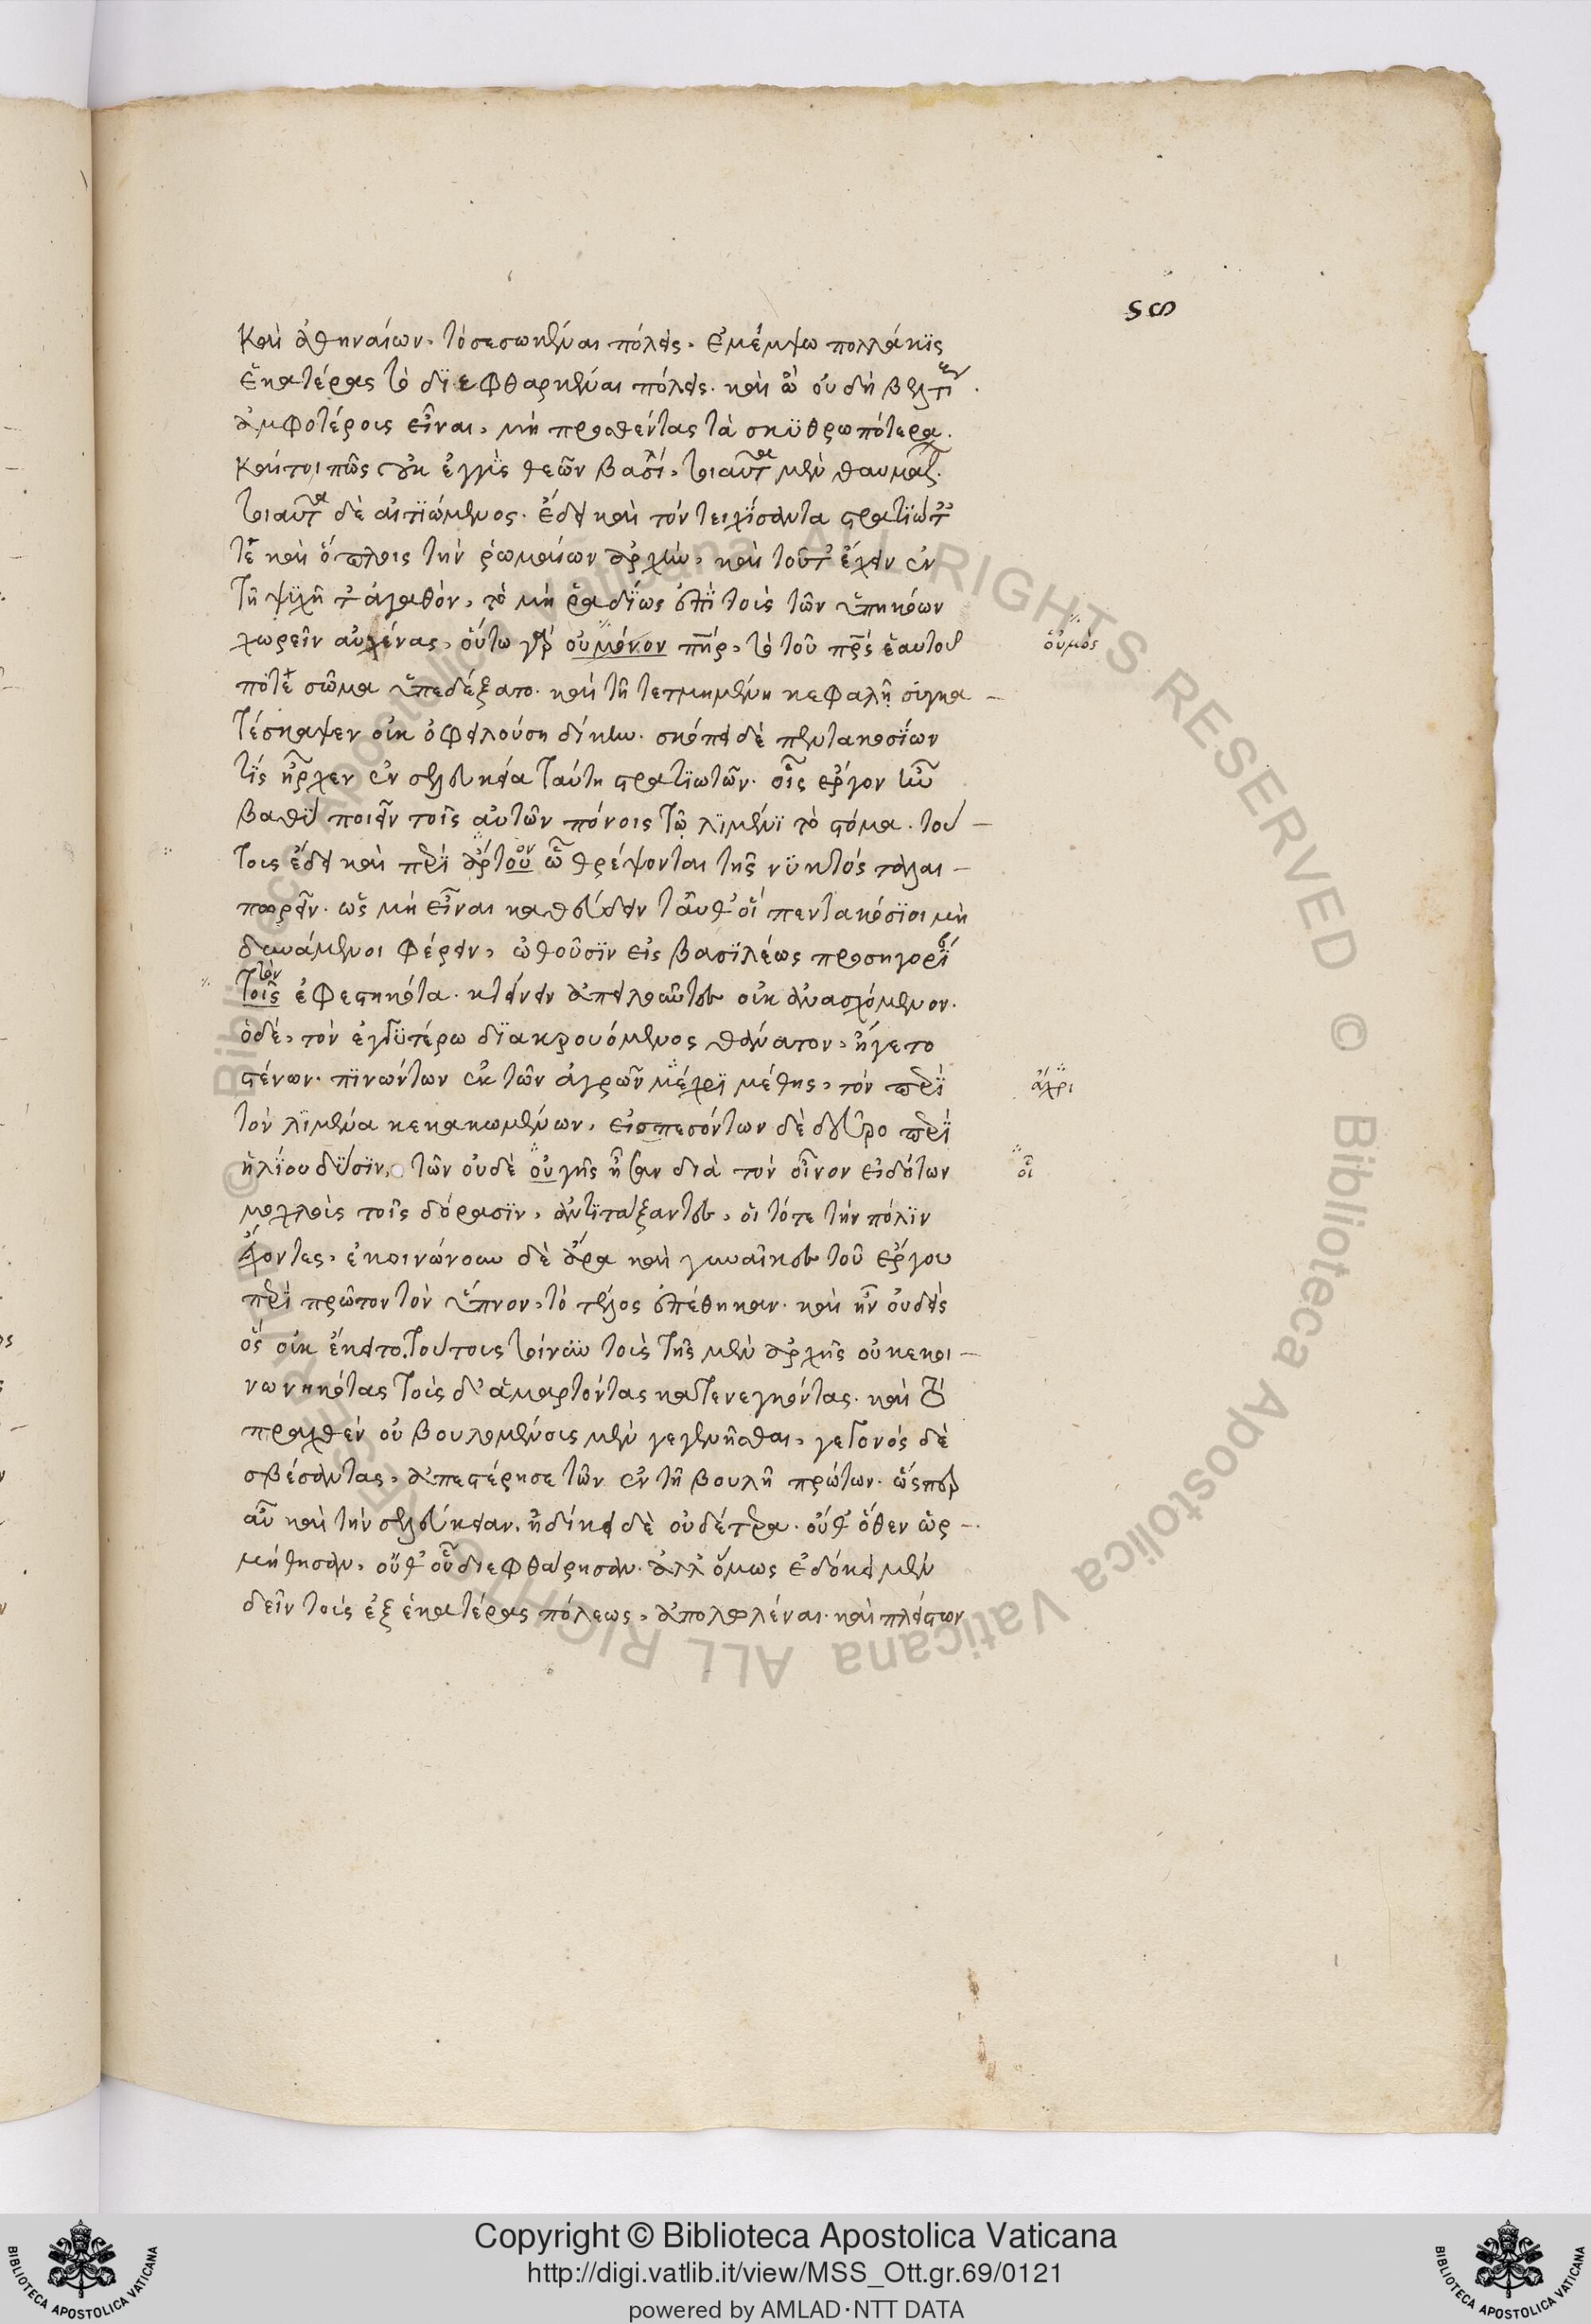 Καὶ ἀθηναίων, τὸ σεσωκέναι πόλεις. ἐμέμψω πολλάκις
ἑκατέρας τὸ διεφθαρκέναι πόλεις. καὶ ᾧ οὐδὴ βέλτιον
ἀμφοτέροις εἶναι, μὴ προσθέντας τὰ σκυθρωπότερα.
Καίτοι πῶς οὐκ ἐγγὺς θεῶν βασιλεῖ, τοιαῦτα μὲν θαυμάζειν.
τοιαῦτα δὲ αἰτιώμενος. ἔδει καὶ τὸν τειχίσαντα στρατιώταις
τε καὶ ὅπλοις τὴν ῥωμαίων ἀρχὴν, καὶ τοῦτ' ἔχειν ἐν
τῇ ψυχῇ τ' ἀγαθὸν, τὸ μὴ ῥαδίως ἐπὶ τοὺς τῶν ὑπηκόων
χωρεῖν αὐχένας, οὕτω γὰρ οὐ μόνον πατὴρ, τὸ τοῦ πατρὸς ἑαυτοῦ
ποτὲ σῶμα ὑπεδέξατο. καὶ τῇ τετμημένῃ κεφαλῇ σίγκα -
τέσκαψεν οὐκ ὀφειλούσῃ δίκην. σκόπει δὲ πεντακοσίων
τίς ἦρχεν ἐν σελευκείᾳ ταύτῃ στρατιωτῶν. οἷς ἔργον ἦν
βαθὺ ποιεῖν τοῖς αὐτῶν πόνοις τῷ λιμένι τὸ στόμα. τού -
τοις ἔδει καὶ περὶ ἄρτου ὃν ᾧ θρέψονται τῆς νυκτὸς ταλαι -
πωρεῖν. ὡς μὴ εἶναι καθεύδειν ταῦθ' οἱ πεντακόσιοι μὴ
δυνάμενοι φέρειν, ὠθοῦσιν εἰς βασιλέως προσηγορίαν
τὸν
τοῖς ἐφεστηκότα. κτείνειν ἀπειλοῦντες οὐκ ἀνασχόμενον.
ὁ δὲ, τὸν ἐγγυτέρω διακρουόμενος θάνατον, ἤγετο
στένων. πινόντων ἐκ τῶν ἀγρῶν μέχρι μέθης, τὸν περὶ
τὸν λιμένα κεκακωμένων, εἰσπεσόντων δὲ δεῦρο περὶ
ἡλίου δύσιν, τῶν οὐδὲ οὐ γῆς ἦσαν διὰ τὸν οἶνον εἰδότων
μοχλοὶς τοῖς δόρασιν, ἀντιτάξαντες, οἱ τότε τὴν πόλιν
ἔχοντες, ἐκοινώνουν δὲ ἄρα καὶ γυναῖκες τοῦ ἔργου
περὶ πρῶτον τὸν ὕπνον, τὸ τέλος ἐπέθηκαν. καὶ ἦν οὐδεὶς
ὃς οὐκ ἔκειτο. τούτους τοίνυν τοὺς τῆς μὲν ἀρχῆς οὐ κεκοι -
νωνηκότας τοὺς δ' ἁμαρτόντας κατενεγκόντας. καὶ τὸ
πραχθὲν οὐ βουλομένοις μὲν γεγενῆσθαι, γεγονὸς δὲ
σβέσαντας, ἀπεστέρησε τῶν ἐν τῇ βουλῇ πρώτων. ὥσπερ
αὖ καὶ τὴν σελεύκειαν. ἠδίκει δὲ οὐδέτερα. οὔθ' ὅθεν ὡρ -
μήθησαν, οὔθ' οὗ διεφθάρησαν. ἀλλ' ὅμως ἐδόκει μὲν
δεῖν τοὺς ἐξ ἑκατέρας πόλεως, ἀπολωλέναι. καὶ πλείστων
οὑμὸς
ἄχρι
οἷ
Copyright © Biblioteca Apostolica Vaticana
http://digi.vatlib.it/view/MSS_Ott.gr.69/0121
powered by AMLAD·NTT DATA
BIBLIOTECA APOSTOLICA VATICANA
BIBLIOTECA APOSTOLICA VATICANA
© Biblioteca Apostolica Vaticana ALL RIGHTS RESERVED © Biblioteca Apostolica Vaticana ALL RIGHTS RESERVED